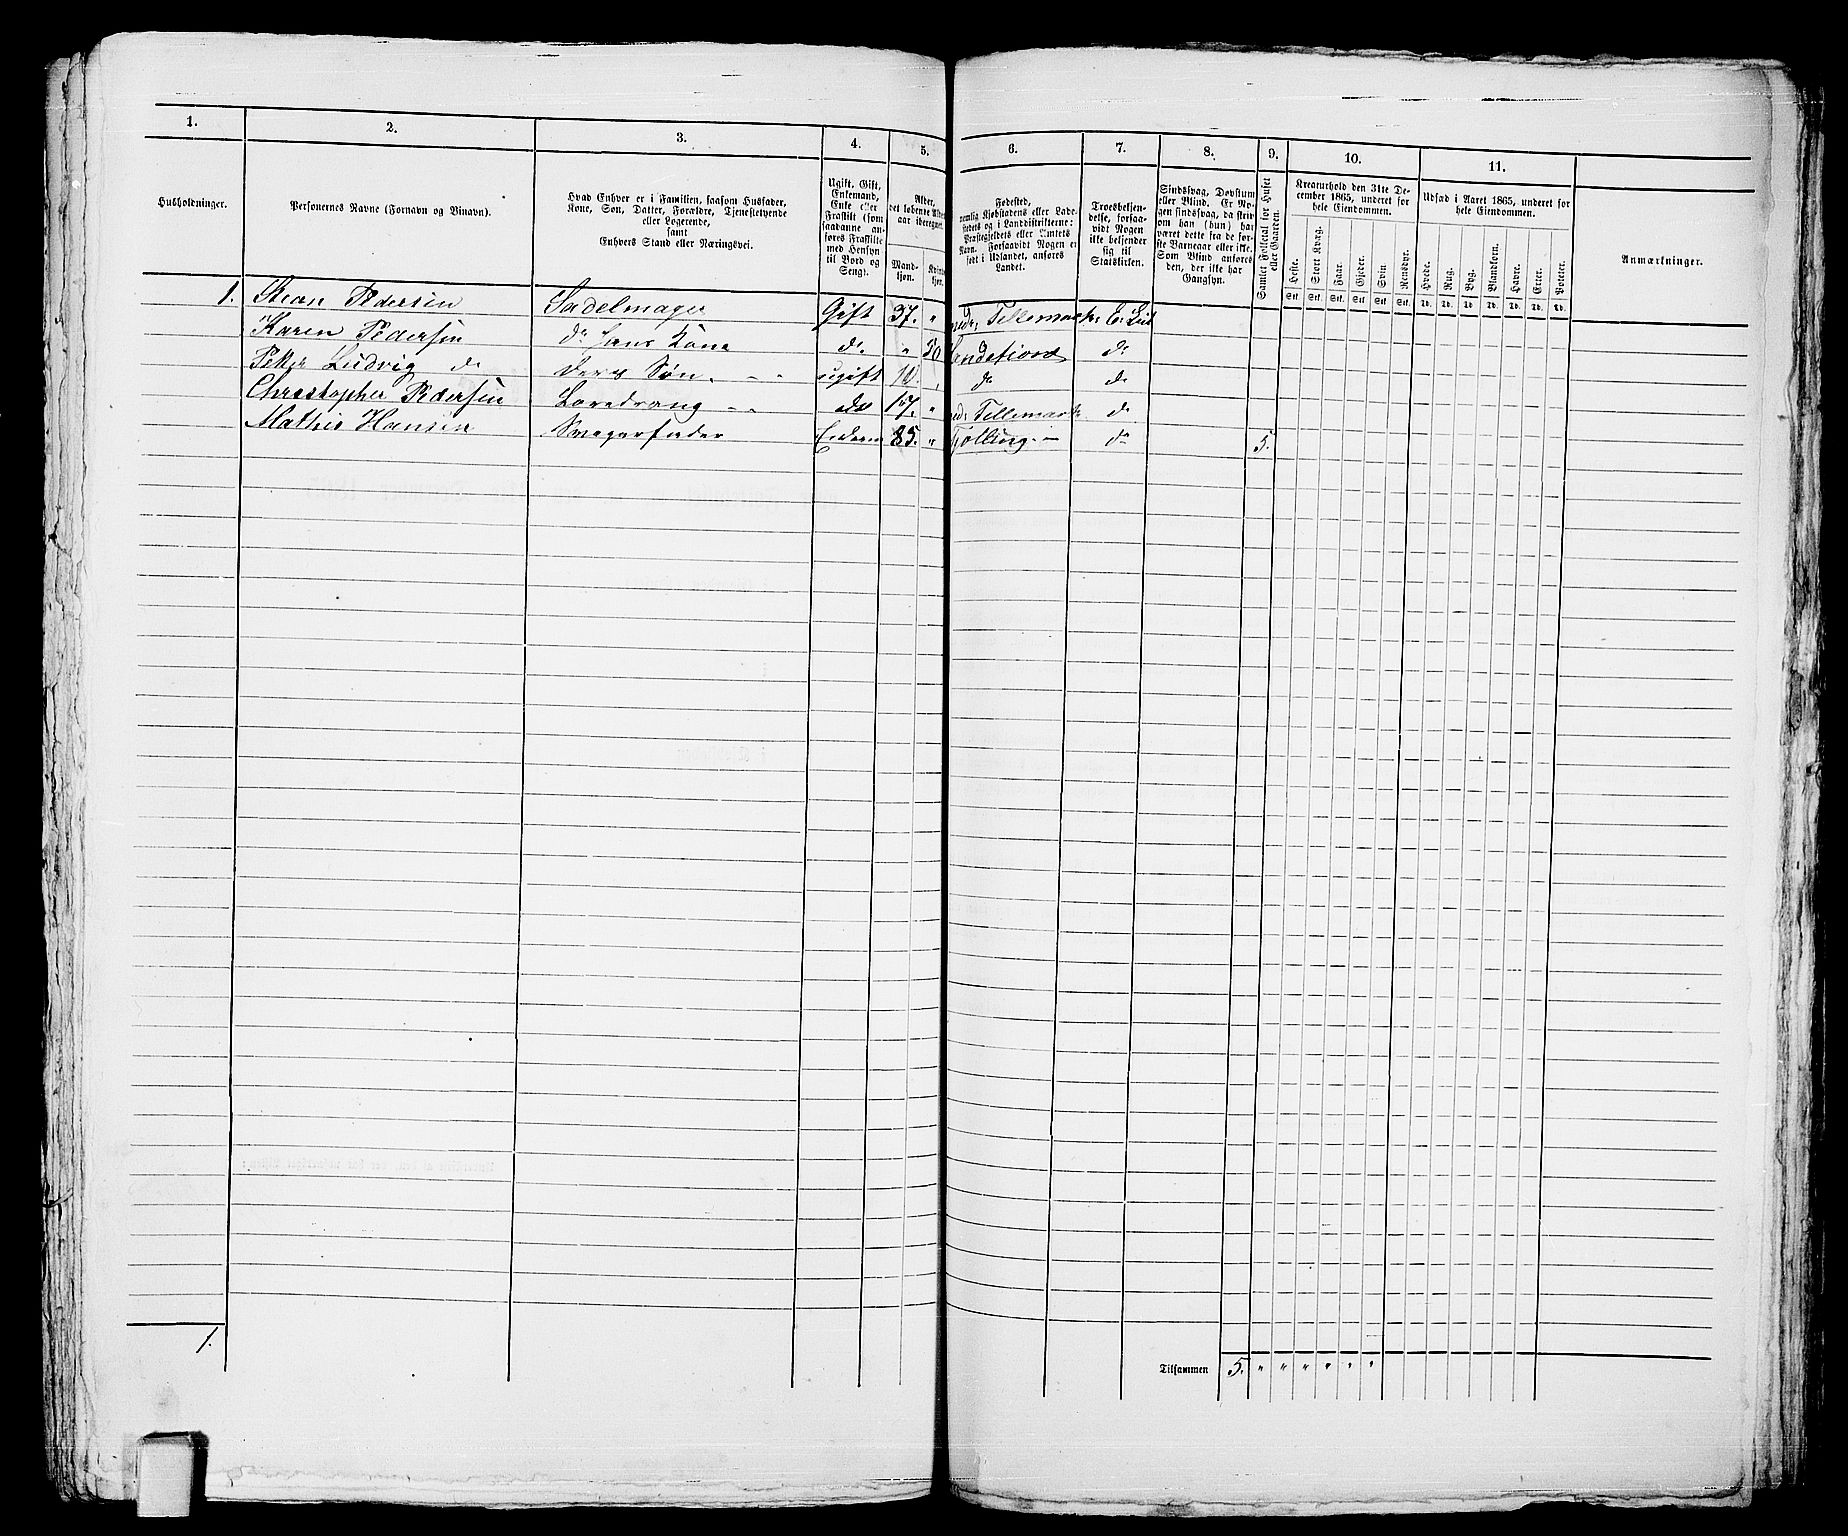 1. 2. 3. 4. 5. 6. 7. 8. 9. 10. 11.
Husholdninger.
Personernes Navne (Fornavn og Vinavn).
Hvad Enhver er i Familien, saasom Husfader,
Kone, Søn, Datter, Forældre, Tjenestetyende
eller Logerende,
samt
Enhvers Stand eller Næringsvei.
Ugift, Gift,
Enkemand,
Enke eller
Fraskilt (som
saadanne an-
føres Fraskilte
med Hensyn
til Bord og
Seng).
Alder,
det løbende Alders-
aar iberegnet.
Mand-
kjøn.
Kvinde-
kjøn.
Fødested,
nemlig Kjøbstadens eller Lade-
stedets og i Landdistrikterne:
Præstegjeldets eller Amtets
Navn. Forsaavidt Nogen er
født i Udlandet, anføres
Landet.
Troesbekjen-
delse, forsaa-
vidt Nogen
ikke bekjender
sig til
Statskirken.
Sindssvag, Døvstum
eller Blind. Er No-
gen sindssvag, da skriv
om han (hun) har
været dette fra de før-
ste Barneaar eller ikke.
Som Blind anføres
den, der ikke har
Gangsyn.
Samlet Folketal for Huset
eller Gaarden.
Kreaturhold den 31te De-
cember 1865, underet for
hele Eiendommen.
Heste. Stort Kvæg. Faar. Gjeder. Svin. Rensdyr.
Stk. Stk. Stk. Stk. Stk. Stk.
Udsæd i Aaret 1865, underet for
hele Eiendommen.
Hvede. Rug. Byg. Blandkorn. Havre. Erter. Poteter.
Td. Td. Td. Td. Td. Td. Td.
Anmærkninger.
1. Stean Pedersen Sadelmager Gift 37. " ned: Tellemarken E. Lut
Karen Pedersen do hans Kone do. " 50 Sandefiord do
Peter Ludvig do deres Søn. ugift 10. " do do
Christopher Pedersen Læredreng do 17. " ned: Tellemarken do
Mathis Hansen Svegerfader Enkem 85. " Tjølling do 5.
1.
Tilsammen 5. " " " " " "